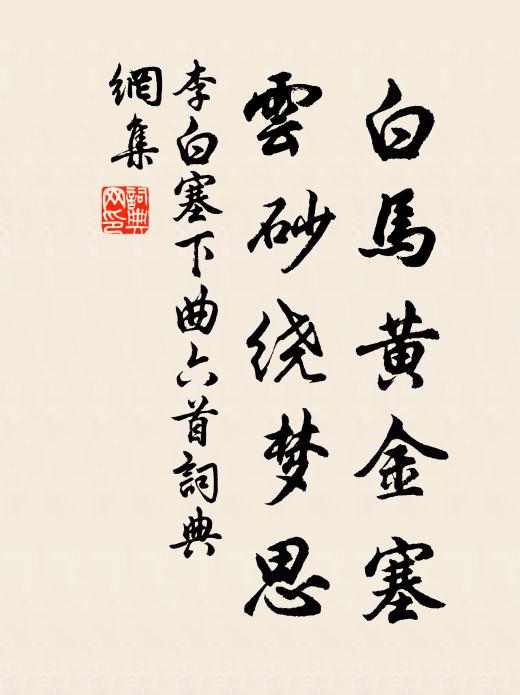 白馬黄金塞
雲砂绕梦思
李白塞下曲六首詞典
網集
詞典網印